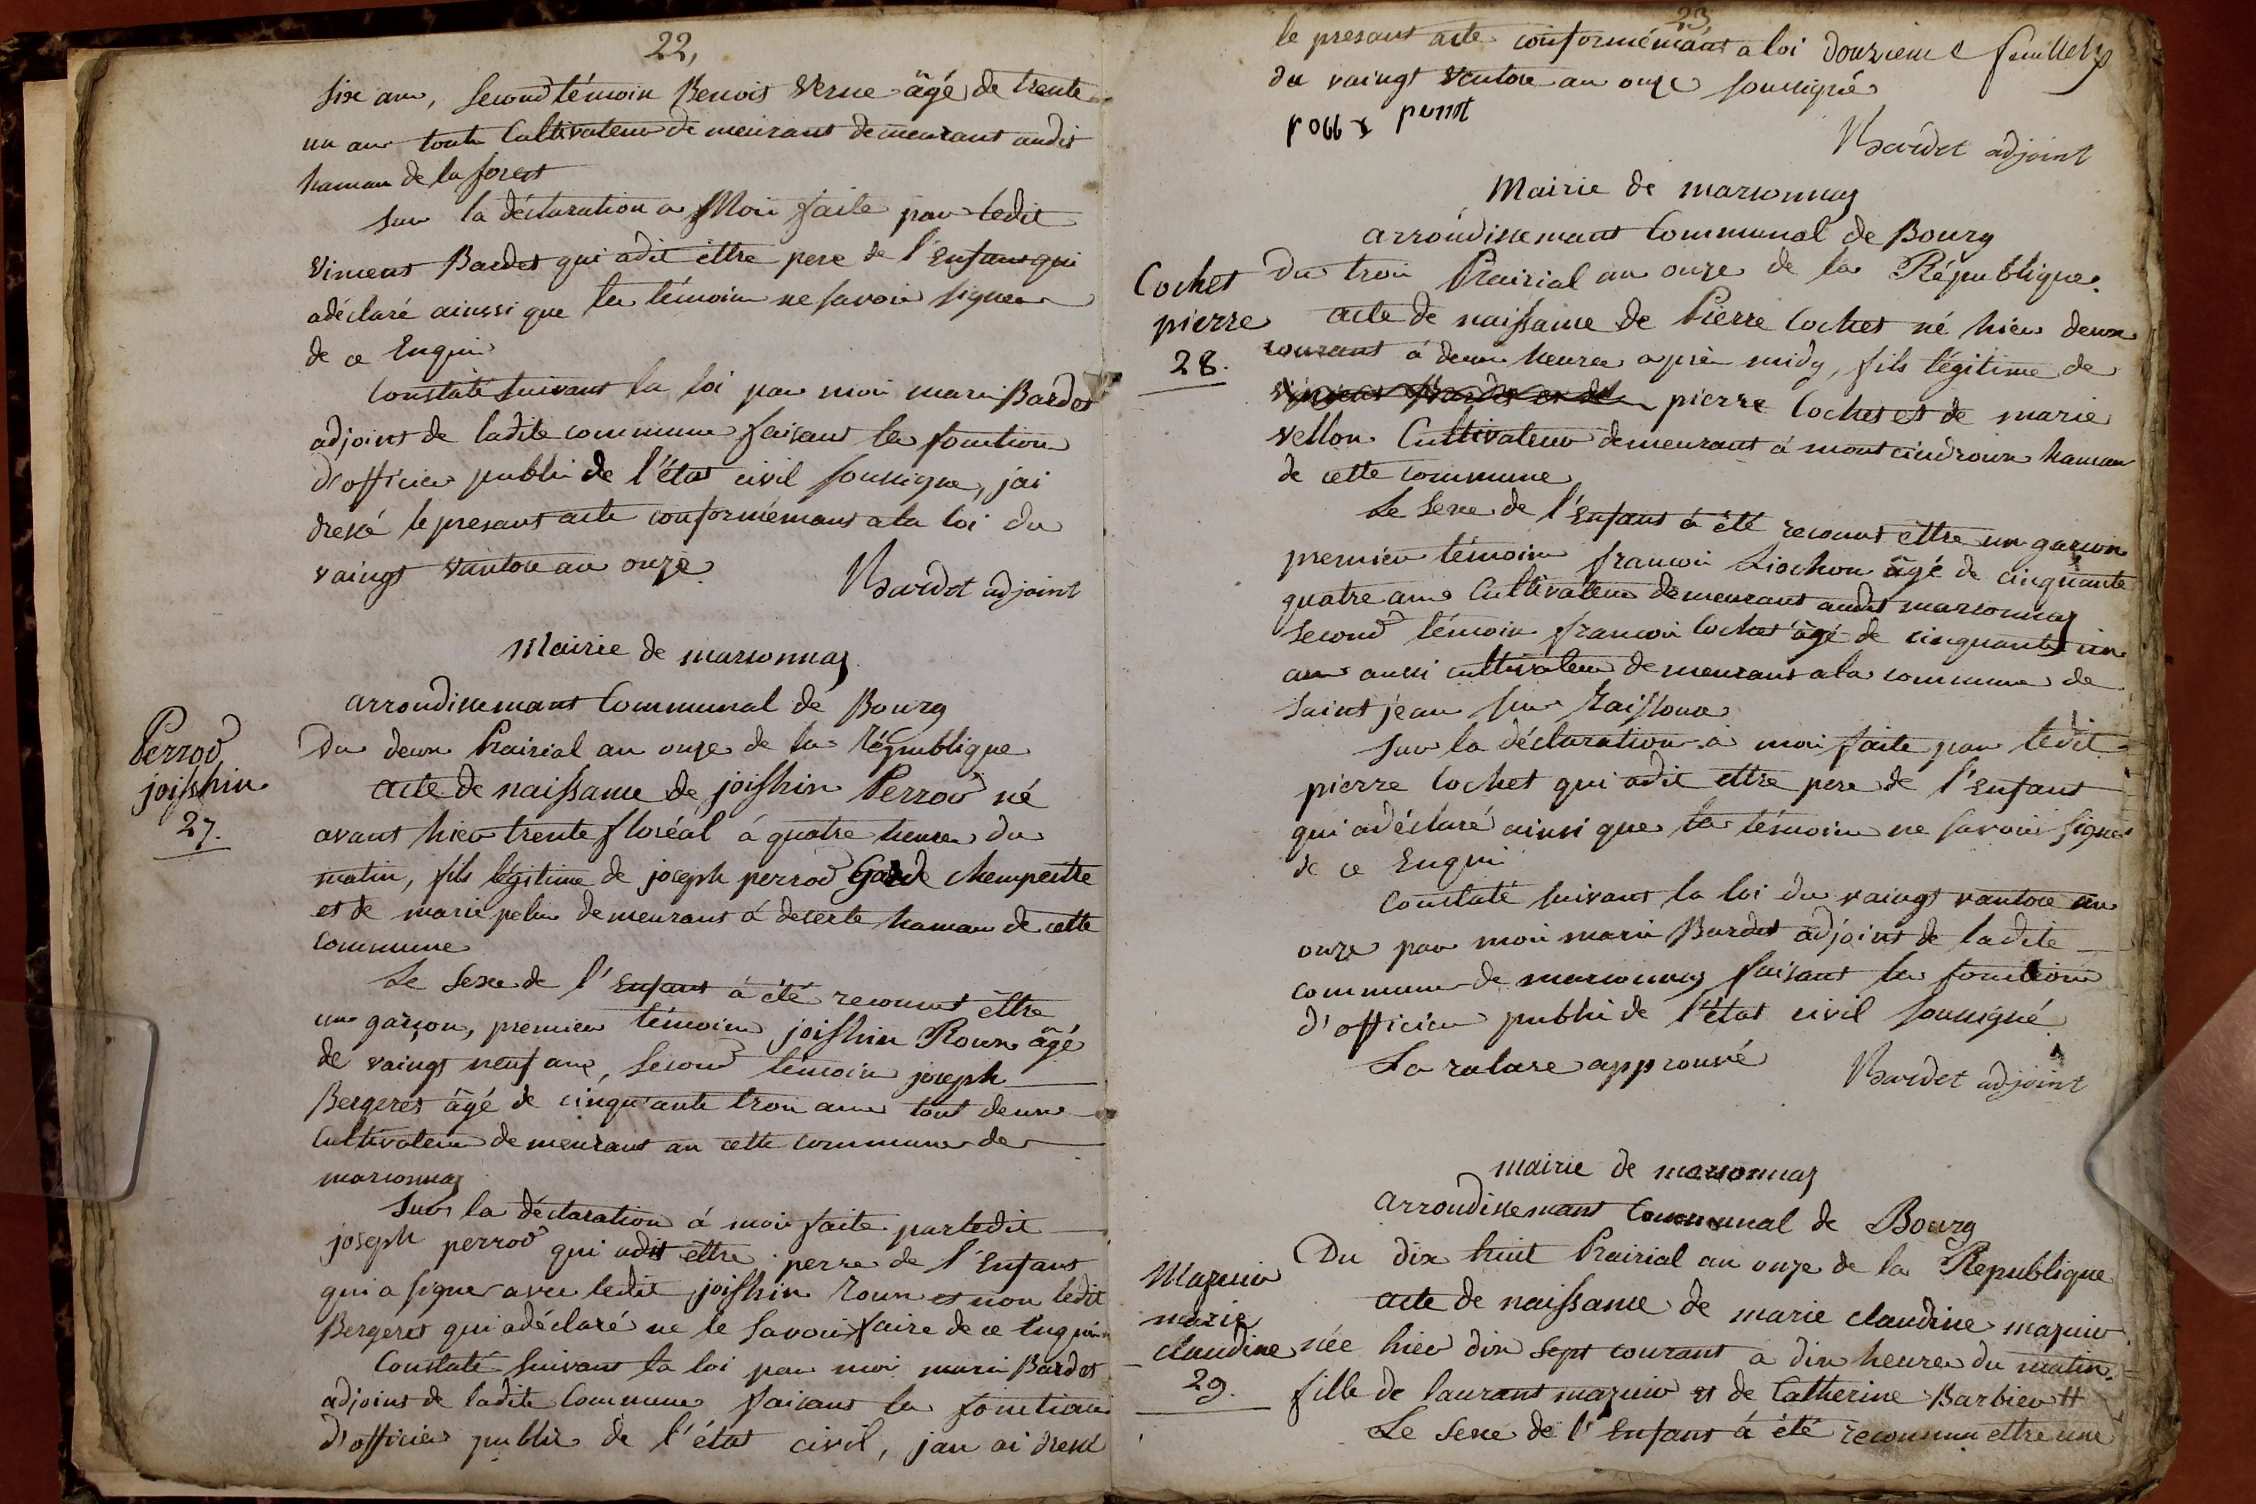 22,
six ans, second témoin Benois Verne âgé de trente
un ans touts Cultivateur de meurans demeurans audit
hamau de la forest
sur la déclaration a Moi faite par ledit
vincens Bardet qui adit ettre pere de l'Enfans qui
adéclaré ainssi que les témoins ne savoir signer
de ce Enquis
Constaté suivans la loi par moi marin Bardet
adjoins de ladite commune faisans les fonction
d'officier publi de l'étas civil soussigne, jai
dressé le presans acte conformémans ala loi du
vaings vantose an onze
Bardet adjoint
Mairie de marsonnas
arrondissemans Communal de Bourg
Perrod
joisshin
27.
Du deux Prairial an onze de la République
acte de naissance de joisshin Perrod né
avans hier trente floréal á quatre heures du
matin, fils légitime de joseph perrod Garde chempestre
et de marie pelus demeurans á deserte hamau de cette
commune
Le sexe de l'Enfans á été reconnus ettre
un garçon, premier témoins joisshin Roux âgé
de vaings neuf ans, second témoin joseph
Bergeres âgé de cinquante trois ans tout deux
Cultivateur demeurans an cette commune de
marsonnas
sur la déclaration á moi faite par ledit
joseph perrod qui adit ettre perre de l'Enfans
qui a signer avec ledit joisshin roux et non ledit
Bergeres qui adéclaré ne le savoir faire de ce Enquis
Constaté suivans la loi par moi marin Bardet
adjoins de ladite Commune faisans les fonctions
d'officier publie de l'état civil, jan ai dressé
23
le presans acte conformémans a loi douzieme feuillet
du vaings ventose an onze soussigné
perrot
Bardet adjoint
Mairie de marsonnas
arrondissemans Communal de Bourg
Cochet
pierre
28.
Du trois Prairial an onze de la République.
acte de naissance de Pierre Cochet né hier deux
courant á deux heures après midy, fils légitime de
pierre Cochet et de marie
vellon Cultivateur demeurans á montcindroux hamau
de cette commune
Le sexe de l'Enfans á été reconnus ettre un garçon
premier témoin francois Liochon âgé de cinquante
quatre ans Cultivateur demeurans audit marsonnas
second témoin francois Cochet âgé de cinquante un
ans aussi cultivateur demeurans ala commune de
saint jean sur raissoux
sur la déclaration a moi faite par ledit
pierre Cochet qui adit ettre pere de l'Enfant
qui adéclaré ainsi que les témoins ne savoir signer
de ce Enquis
Constaté suivans la loi du vaings vantose an
onze par moi marin Bardet adjoins de ladite
commune de marsonnas faisans les fonctions
d'officier publi de l'étas civil soussigné
La rature approuvé
Bardet adjoint
mairie de marsonnas
arrondissemans Communal de Bourg
Mazuir
marie
claudine
29.
Du dix huit Prairial an onze de la Republique
acte de naissance de marie claudine mazuir
née hier dix sept courant a dix heures du matin
fille de laurant mazuir et de Catherine Barbier #
Le sexe de l'Enfans á été reconnu ettre une